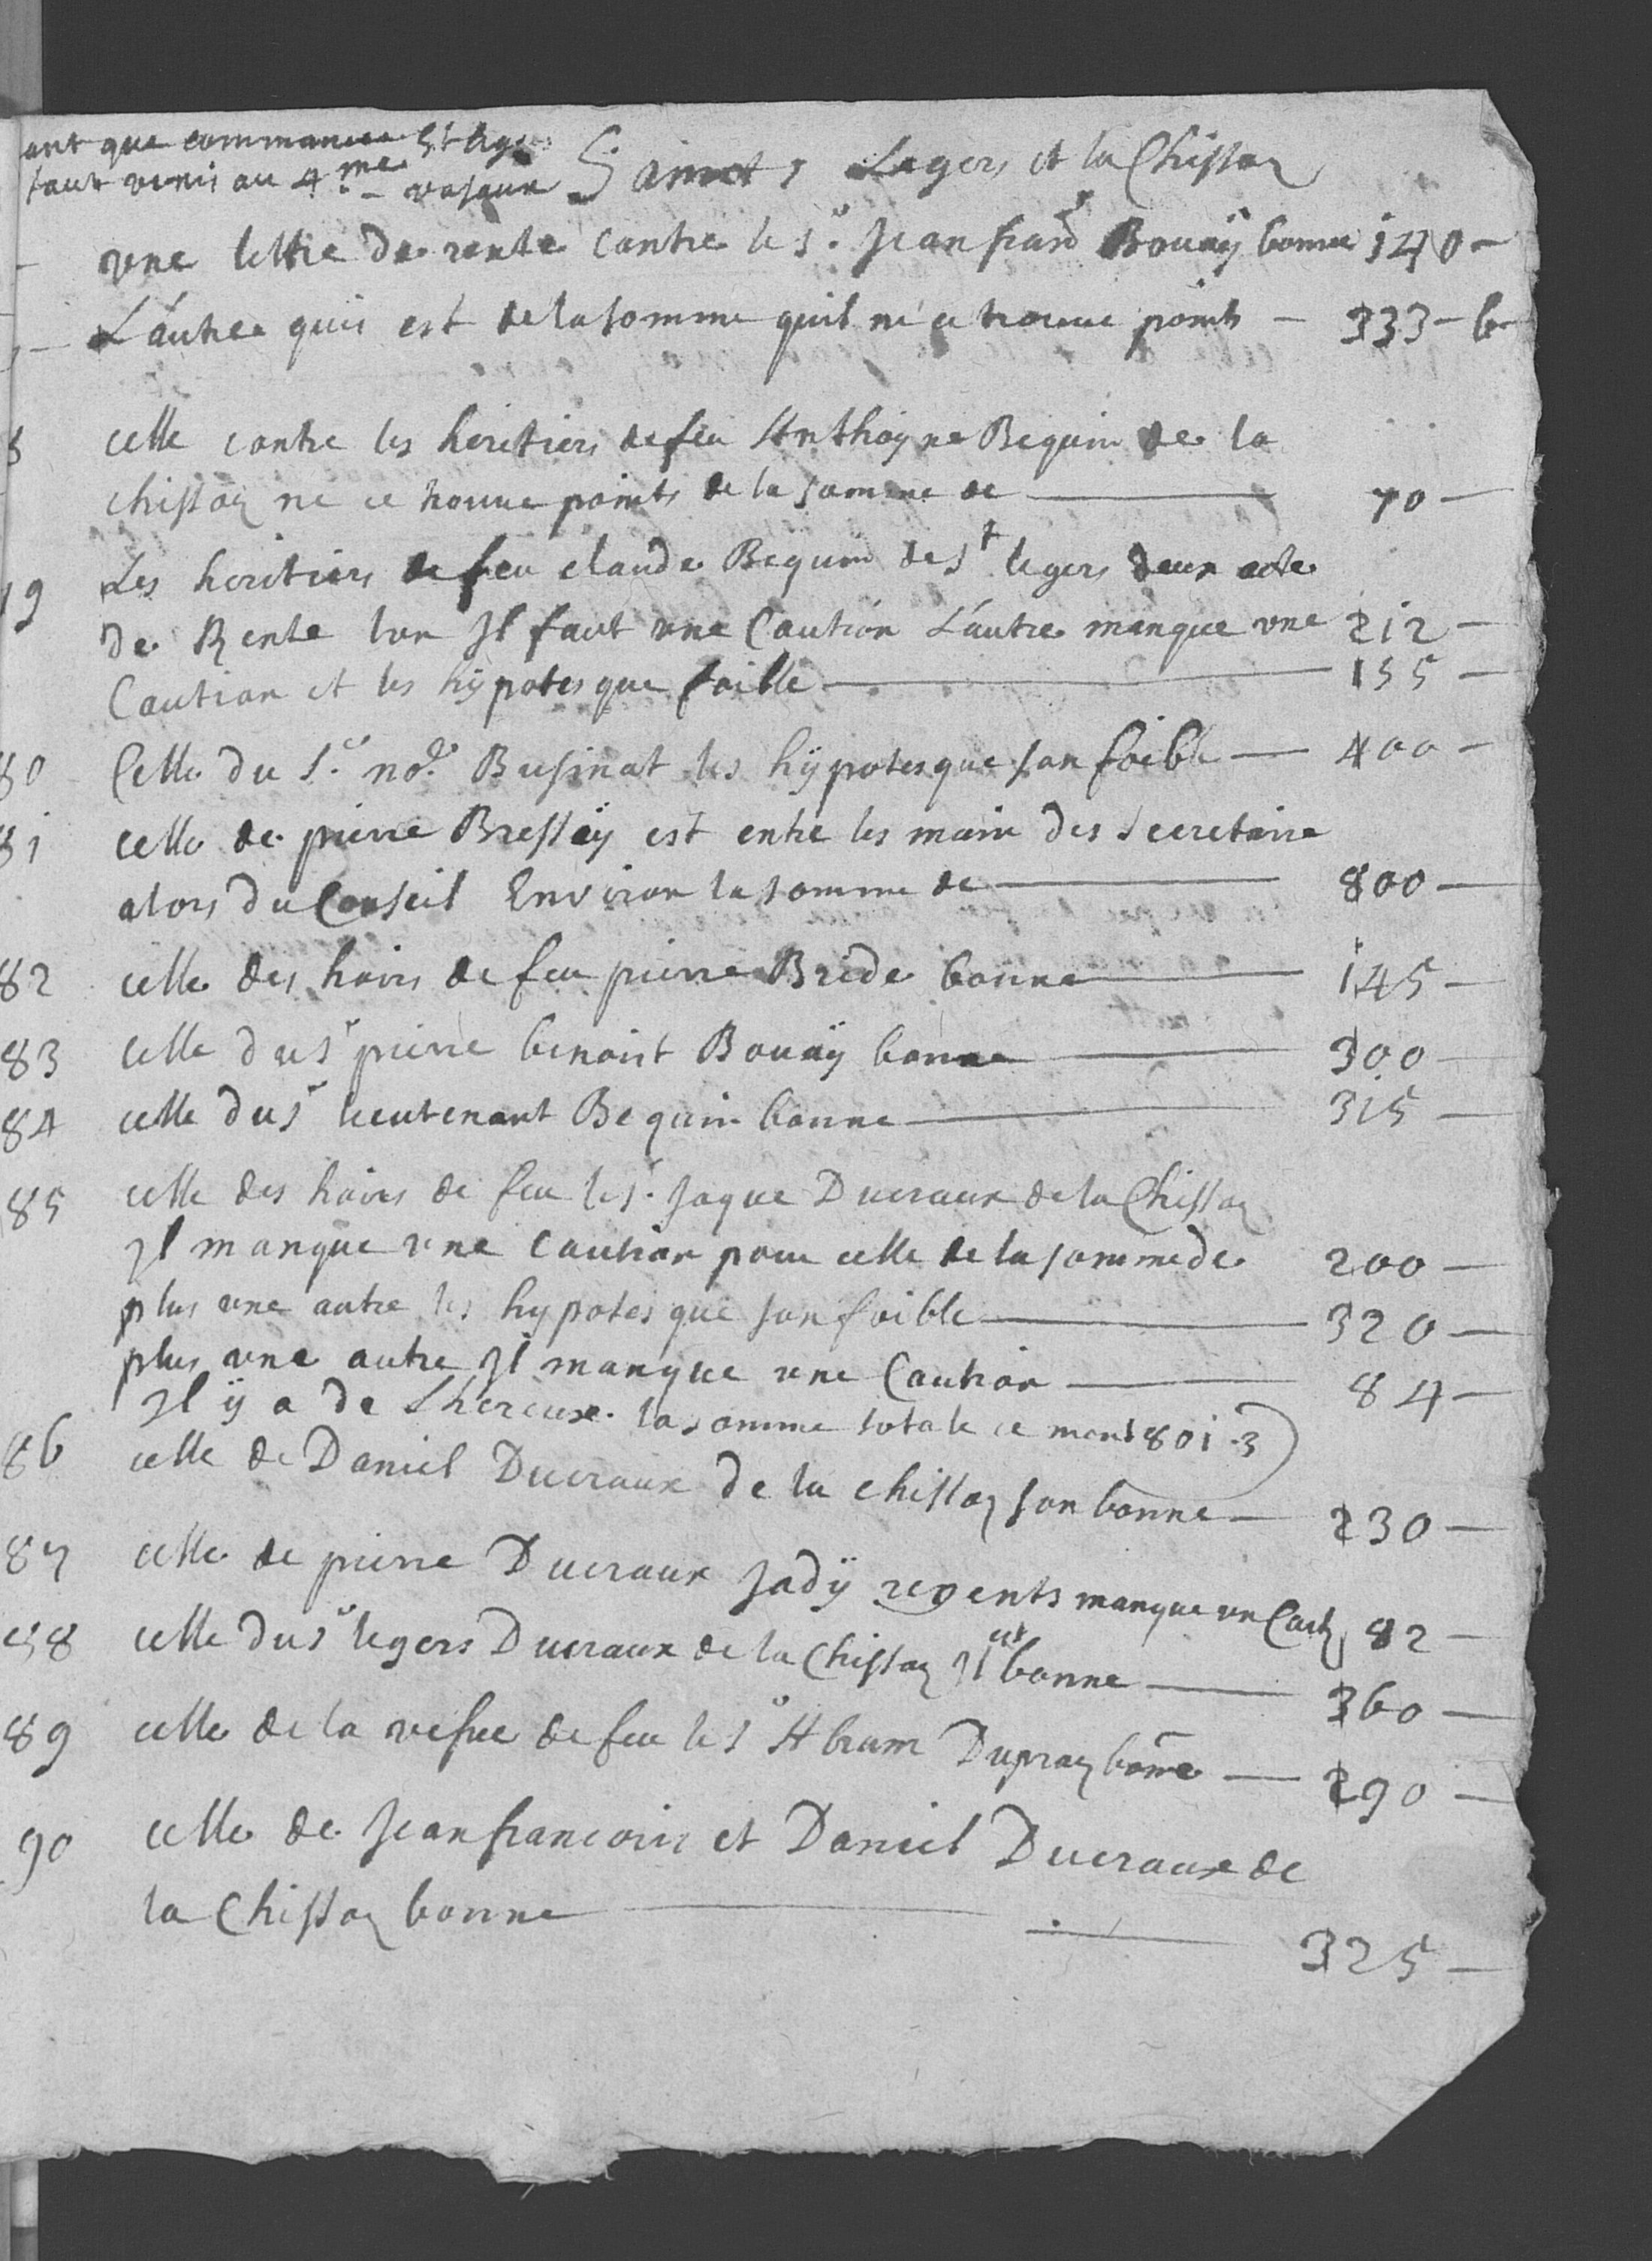 ant que commancer St legers
faut venir au 4.me vosaux Saincts Legers et la Chissaz
une lettre de rente contre le Sr. Jean frans Bouaÿ bonne 140 —
L'autre quis est de la somme quil ne ce trouve points — 333 — b
8 celle contre les heritiers de feu Anthoyne Bequin de la
chissaz ne ce trouve points de la somme de — 70 —
79 Les heritiers de feu claude Bequin de St legers deux acte
de Rente lun Jl faut une Caution L'autre manque une 212 —
Caution et les hÿpotesque foible — 155 —
80 Celle du Sr. nore. Businat les hÿpotesque son foible — 400 —
81 celle de pierre Bressëÿ est entre les main des Secretaire
alors du Conseil Environ la somme de — 800 —
82 celle des hoirs de feu pierre Brede bonne — 145 —
83 celle du Sr pierre benoist Bouaÿ bonne — 300 —
84 celle du Sr lieutenant Bequin bonne — 315 —
85 celle des hoirs de feu le Sr. Jaque Ducraux de la Chissaz
Jl manque une Caution pour celle de la somme de 200 —
plus une autre les hypotesque son foible — 320 —
plus une autre Jl manque une Caution — 84 —
Jl ÿ a de la somme totale ce mont 801 - 3)
86 celle de Daniel Ducraux de la chissaz son bonne — 230 —
87 celle de pierre Ducraux Jadÿ regents manque un 82 —
88 celle du Sr legers Ducraux de la Chissaz Jl est bonne — 360 —
89 celle de la vefue de feu le Sr Abram Dupraz bonne — 290 —
90 celle de Jean francois et Daniel Ducraux de
la Chissaz bonne — 325 —